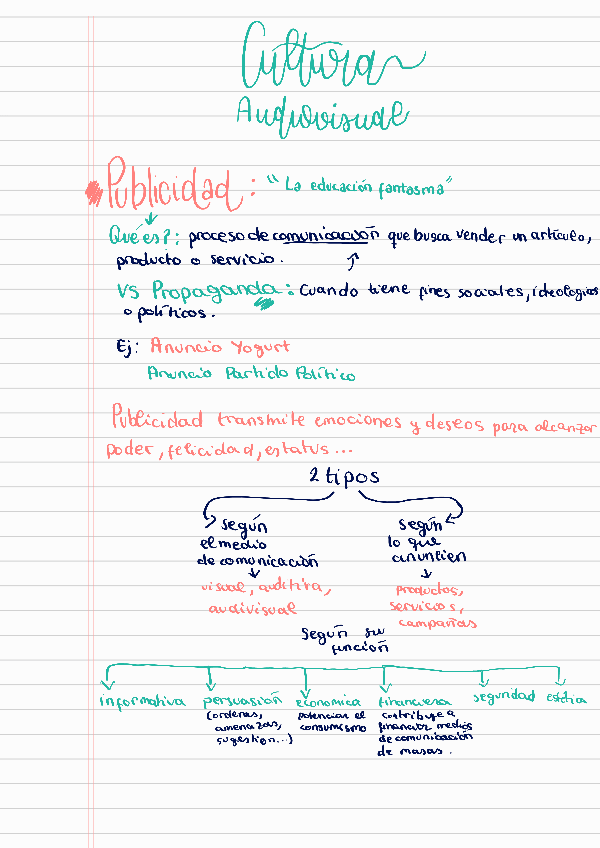 Cultura
Audiovisual
Publicidad: "La educación fantasma"
Qué es?: proceso de comunicación que busca vender un artículo,
producto o servicio.
VS Propaganda: Cuando tiene fines sociales, ideologías
o políticos.
Ej: Anuncio Yogurt
Anuncio Partido Político
Publicidad transmite emociones y deseos para alcanzar
poder, felicidad, estatus...
2 tipos
según
el medio
de comunicación
visual, auditiva,
audivisual
según
lo que
anuncien
productos,
servicios,
campañas
según su
función
informativa
persuasión
(ordenes,
amenazas,
sugestion...)
economica
potenciar el
consumismo
financiera
contribuye a
financiar medios
de comunicación
de masas.
seguridad
estética